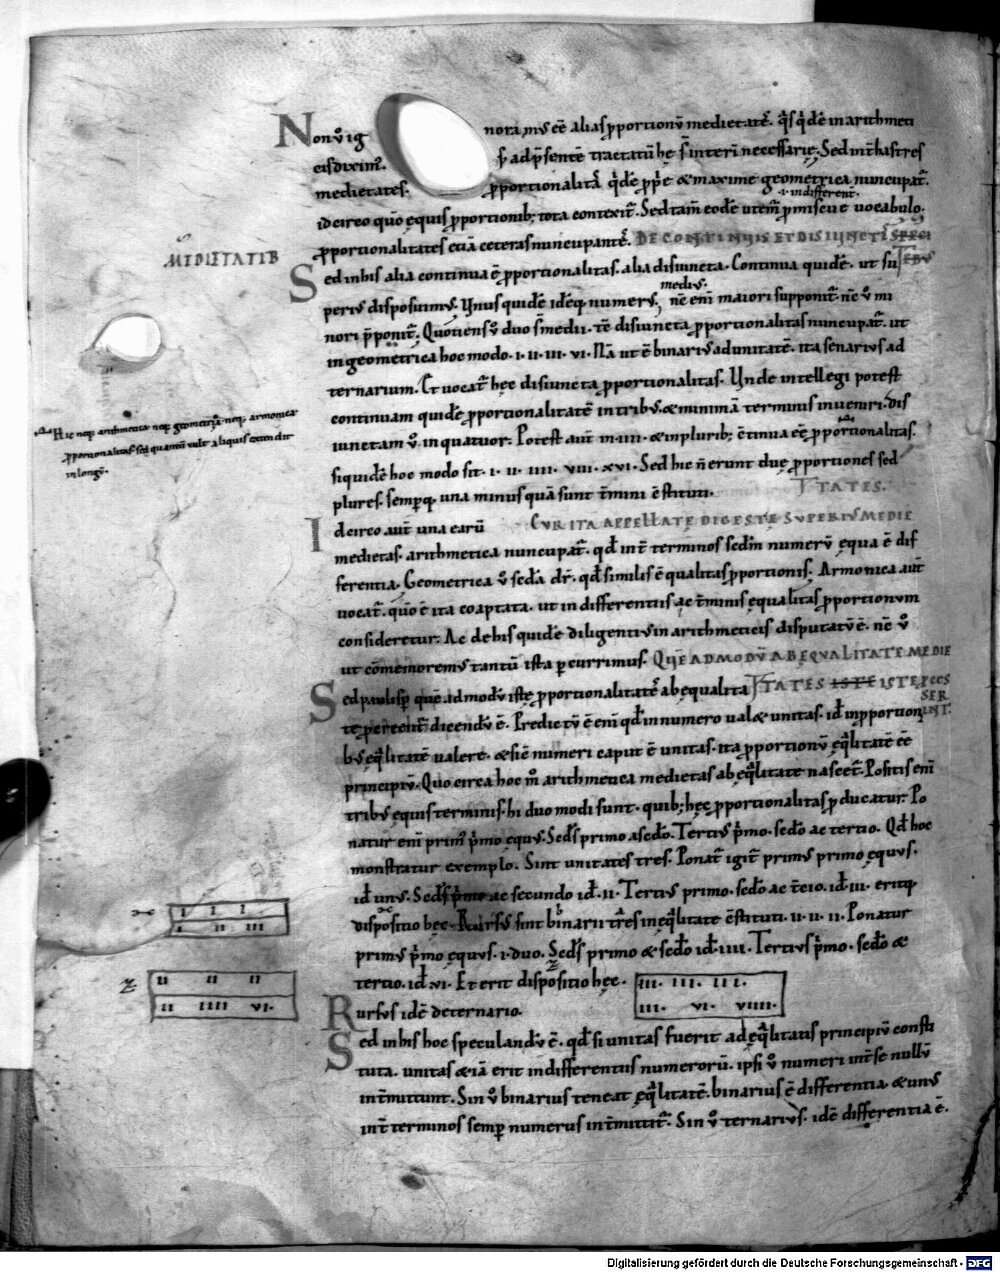 Nonv̄ ig nora mus eē alias pporcionū medietatē. q̄s q̄dē in arithmeti
cis diximᵘ. s; ad p̄sentē tractatū hę s̄ interī necessarię. Sed int̄ has tres
medietates. pportionalitā q̄dē pp̄e & maxime geometrica nuncupat̄.
.i. indifferent̄.
idcirco quō ęquis pportionib; tota contexit̄. Sed tam̄ eodē utem̄ p̄miscue uocabulo.
pportionalitates etiā ceteras nuncupantē. DE CONTINUIS ET DISIUNCTIS PROI
MEDIETATIB
Sed in his alia continua ē pportionalitas. alia disiuncta. Continua quidē. ut su
perius disposuimus. Unus quidē idēq numerus, nē eni maiori supponit̄. nē v̄ mi
medius.
nori p̄ponit̄. Quotiens v̄ duo s̄ medii. tē disiuncta pportionalitas nuncupat̄. ut
in geometrica hoc modo. i. ii. iii. vi. Nā ut ē binarius ad unitatē. ita senarius ad
ternarium. Et uocat̄ hęc disiuncta pportionalitas. Unde intellegi potest
continuam quidē pportionalitatē in tribus & minimā terminis inueniri. dis
iunctam v̄. in quatuor. Potest aut̄ in iiii. & in plurib; c̄tinua eē pportionalitas.
Hic neq; arithmetica neq; geometrica neq; armonica
pportionalitas. sed quantū uult aliquis
in longū.
siquidē hoc modo sit. i. ii. iiii. viii. xvi. Sed hic n̄ erunt duę pportiones sed
plures. semperq; una minus quā sunt t̄mini c̄stituti. TATES.
Idcirco aut̄ una earū CUR ITA APPELLATE DIGESTE SUPERIUS MEDIE
medietas. arithmetica nuncupat̄. qd̄ int̄ terminos sedm̄ numerū ęqua ē dif
ferentia. Geometrica v̄ seda dr̄. qd̄ similis ē qualitas pportionis. Armonica aut̄
uocat̄. quō ē ita coaptata. ut in differentiis ac t̄minis ęqualitas pportionum
consideretur. Ac de his quidē diligentius in arithmeticis disputatū ē. nē v̄
ut cōmemoremus tantū ista percurrimus. QUĒADMODŪ AB EQUALITATE MEDIE
Sed paulisp quēadmodū istę pportionalitatē ab equalita TATES ISTE ISTE PCES
SER
INT.
te percent̄ dicendū ē. Predictū ē eni qd̄ in numero ualet unitas. id̄ in pportion
bus ęq̄litatē ualere. & sic̄ numeri caput ē unitas. ita pportionū ęq̄litatē eē
principiū. Quocirca hoc m̊ arithmetica medietas ab ęq̄litate nascet̄. Positis eni
tribus ęquis terminis. hi duo modi sunt. quib; hęc pportionalitas p̄ducatur. Po
natur eni prim̄ p̄mo ęqus. Seds primo ac sedo. Tertius p̄mo. sedo ac tertio. Qd̄ hoc
monstratur exemplo. Sint unitates tres. Ponat̄ igit̄ primus primo ęquus.
id̄ unus. Seds p̄mo ac secundo id̄. ii. Tertius primo. sedo ac t̄cio. id̄. iii. eritq
I I I
I II III
dispositio hęc. Rursus sint binarii tr̄es in ęq̄litate c̄stituti. ii. ii. ii. Ponatur
primus p̄mo ęquus. i. duo. Seds primo & sedo id̄. iiii. Tertius p̄mo. sedo &
II II II
II IIII VI.
tertio. id̄. vi. Et erit dispositio hęc.
III. III. III.
III. VI. VIIII.
Rursus idē de ternario.
Sed in his hoc speculandū ē. qd̄ si unitas fuerit ad ęq̄litatis principiū consti
tuta. unitas etiā erit in differentiis numerorū. ipsi v̄ numeri int̄ se nullū
int̄mittunt. Sin v̄ binarius teneat ęq̄litatē. binarius ē differentia. & unus
int̄ terminos semp numerus int̄mittit̄. Sin v̄ ternarius. idē differentia ē.
Digitalisierung gefördert durch die Deutsche Forschungsgemeinschaft - DFG